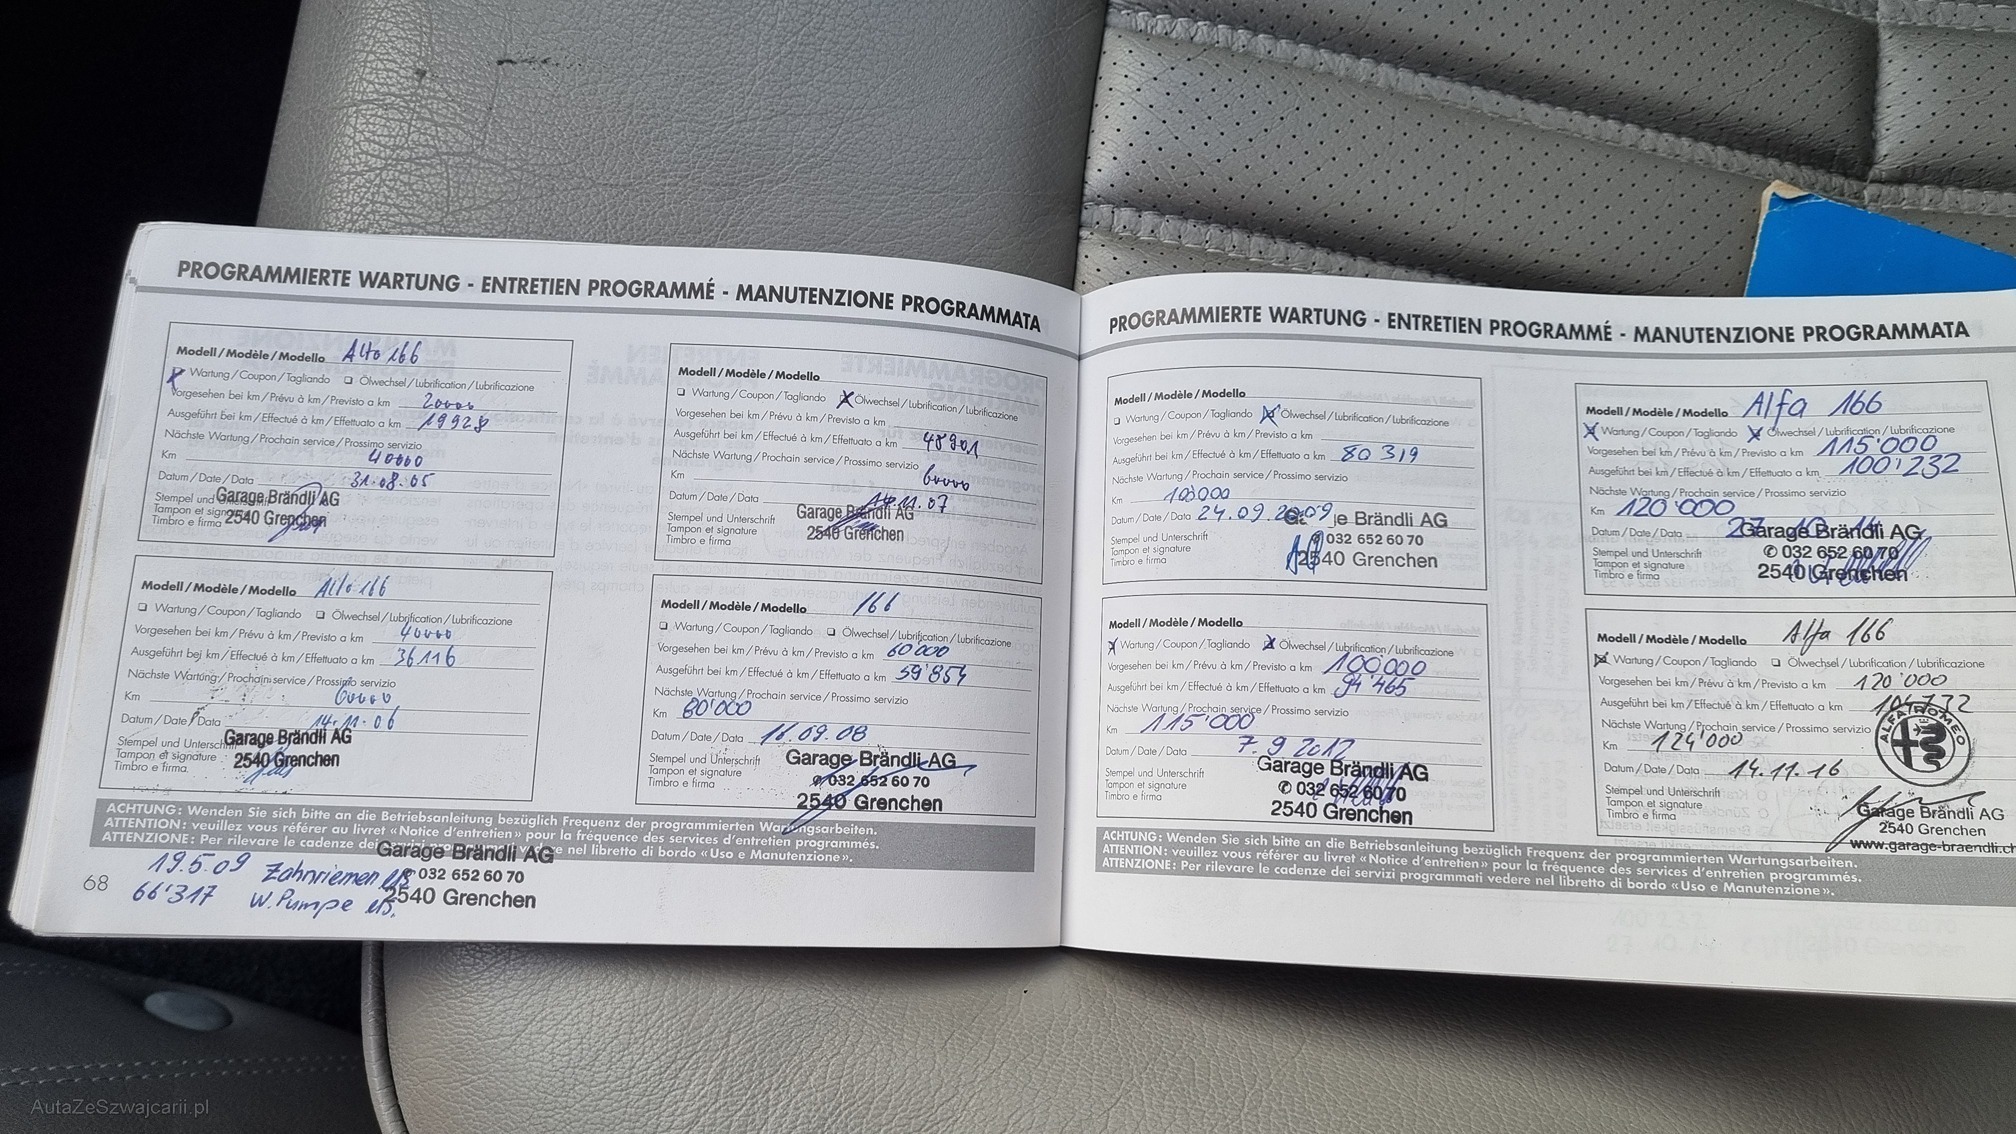 PROGRAMMIERTE WARTUNG - ENTRETIEN PROGRAMMÉ - MANUTENZIONE PROGRAMMATA
Modell / Modèle / Modello Alfa 166
Wartung / Coupon / Tagliando Ölwechsel / Lubrification / Lubrificazione
Vorgesehen bei km / Prévu à km / Previsto a km 20000
Ausgeführt bei km / Effectué à km / Effettuato a km 19928
Nächste Wartung / Prochain service / Prossimo servizio
Km 40000
Datum / Date / Data 31.08.05
Stempel und
Tampon et signature
Timbro e firma
Garage Brändli AG
2540 Grenchen
Modell / Modèle / Modello Alfa 166
Wartung / Coupon / Tagliando Ölwechsel / Lubrification / Lubrificazione
Vorgesehen bei km / Prévu à km / Previsto a km 40000
Ausgeführt bei km / Effectué à km / Effettuato a km 36116
Nächste Wartung / Prochain service / Prossimo servizio
Km 60000
Datum / Date / Data 14.11.06
Stempel und Unterschrift
Tampon et signature
Timbro e firma
Garage Brändli AG
2540 Grenchen
Modell / Modèle / Modello
Wartung / Coupon / Tagliando Ölwechsel / Lubrification / Lubrificazione
Vorgesehen bei km / Prévu à km / Previsto a km
Ausgeführt bei km / Effectué à km / Effettuato a km 48901
Nächste Wartung / Prochain service / Prossimo servizio
Km 60000
Datum / Date / Data 11.07
Stempel und Unterschrift
Tampon et signature
Timbro e firma
Garage Brändli AG
2540 Grenchen
Modell / Modèle / Modello 166
Wartung / Coupon / Tagliando Ölwechsel / Lubrification / Lubrificazione
Vorgesehen bei km / Prévu à km / Previsto a km 60'000
Ausgeführt bei km / Effectué à km / Effettuato a km 59'854
Nächste Wartung / Prochain service / Prossimo servizio
Km 80'000
Datum / Date / Data 11.09.08
Stempel und Unterschrift
Tampon et signature
Timbro e firma
Garage Brändli AG
✆ 032 652 60 70
2540 Grenchen
ACHTUNG: Wenden Sie sich bitte an die Betriebsanleitung bezüglich Frequenz der programmierten Wartungsarbeiten.
ATTENTION: veuillez vous référer au livret «Notice d'entretien» pour la fréquence des services d'entretien programmés.
ATTENZIONE: Per rilevare le cadenze dei servizi programmati vedere nel libretto di bordo «Uso e Manutenzione».
19.5.09 Zahnriemen ers.
66'317 W.Pumpe ers.
Garage Brändli AG
✆ 032 652 60 70
2540 Grenchen
68
PROGRAMMIERTE WARTUNG - ENTRETIEN PROGRAMMÉ - MANUTENZIONE PROGRAMMATA
Modell / Modèle / Modello
Wartung / Coupon / Tagliando Ölwechsel / Lubrification / Lubrificazione
Vorgesehen bei km / Prévu à km / Previsto a km
Ausgeführt bei km / Effectué à km / Effettuato a km 80319
Nächste Wartung / Prochain service / Prossimo servizio
Km 100000
Datum / Date / Data 24.09.2009
Stempel und Unterschrift
Tampon et signature
Timbro e firma
Brändli AG
✆ 032 652 60 70
2540 Grenchen
Modell / Modèle / Modello
Wartung / Coupon / Tagliando Ölwechsel / Lubrification / Lubrificazione
Vorgesehen bei km / Prévu à km / Previsto a km 100'000
Ausgeführt bei km / Effectué à km / Effettuato a km 94'465
Nächste Wartung / Prochain service / Prossimo servizio
Km 115'000
Datum / Date / Data 7.9 2012
Stempel und Unterschrift
Tampon et signature
Timbro e firma
Garage Brändli AG
✆ 032 652 60 70
2540 Grenchen
Modell / Modèle / Modello Alfa 166
Wartung / Coupon / Tagliando Ölwechsel / Lubrification / Lubrificazione
Vorgesehen bei km / Prévu à km / Previsto a km 115'000
Ausgeführt bei km / Effectué à km / Effettuato a km 100'232
Nächste Wartung / Prochain service / Prossimo servizio
Km 120'000
Datum / Date / Data 27.10.14
Stempel und Unterschrift
Tampon et signature
Timbro e firma
Garage Brändli AG
✆ 032 652 60 70
2540 Grenchen
Modell / Modèle / Modello Alfa 166
Wartung / Coupon / Tagliando Ölwechsel / Lubrification / Lubrificazione
Vorgesehen bei km / Prévu à km / Previsto a km 120'000
Ausgeführt bei km / Effectué à km / Effettuato a km 104732
Nächste Wartung / Prochain service / Prossimo servizio
Km 124'000
Datum / Date / Data 14.11.16
Stempel und Unterschrift
Tampon et signature
Timbro e firma
ALFA ROMEO
Garage Brändli AG
2540 Grenchen
www.garage-braendli.ch
ACHTUNG: Wenden Sie sich bitte an die Betriebsanleitung bezüglich Frequenz der programmierten Wartungsarbeiten.
ATTENTION: veuillez vous référer au livret «Notice d'entretien» pour la fréquence des services d'entretien programmés.
ATTENZIONE: Per rilevare le cadenze dei servizi programmati vedere nel libretto di bordo «Uso e Manutenzione».
AutaZeSzwajcarii.pl